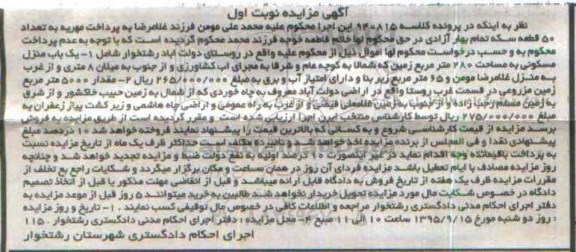 آگهی مزایده نوبت اول
نظر به اینکه در پرونده کلاسه ۹۴۰۸۱۵ این اجرا محکوم علیه محمد علی مومن فرزند غلامرضا به پرداخت مهریه به تعداد
۵۰ قطعه سکه تمام بهار آزادی در حق محکوم لها خانم فاطمه جوجه فرزند محمد محکوم گردیده است که با توجه به عدم پرداخت
محکوم به و حسب درخواست محکوم لها اموال ذیل از محکوم علیه واقع در روستای دولت آباد رشتخوار شامل ۱- یک باب منزل
مسکونی به مساحت ۲۸۰ متر مربع زمین که شمالا به کوچه عام و شرقا به مجرای آب کشاورزی و از جنوب به میلان ۸ متری و از غرب
به منزل غلامرضا مومن و ۶۵ متر مربع زیر بنا و دارای امتیاز آب و برق به مبلغ ۲۶۵/۰۰۰/۰۰۰ ریال ۲- مقدار ۵۰۰۰ متر مربع
زمین مزروعی در قسمت غرب روستا واقع در اراضی دولت آباد معروف به چاه خوردی که از شمال به زمین حبیب خاکشور و از شرق
به زمین مسلم رجب زاده و از جنوب به زمین غلامعلی فیضی و از غرب به راه عمومی و اراضی چاه هاشمی و زیر کشت پیاز زعفران به
مبلغ ۲۷۵/۰۰۰/۰۰۰ ریال توسط کارشناس منتخب این اجرا ارزیابی شده است و مقرر گردیده است از طریق مزایده به فروش
برسد مزایده از قیمت کارشناسی شروع و به کسانی که بالاترین قیمت را پیشنهاد نمایند فروخته خواهد شد ۱۰ درصد مبلغ
پیشنهادی نقدا و فی المجلس از برنده مزایده اخذ خواهد شد و نامبرده مکلف است حداکثر ظرف یک ماه از تاریخ مزایده نسبت
به پرداخت باقیمانده وجه اقدام نماید در غیر اینصورت ۱۰ درصد اولیه به نفع دولت ضبط و مزایده تجدید خواهد شد و چنانچه
روز مزایده مصادف با ایام تعطیل باشد مزایده فردای آن روز در همان ساعت و مکان برگزار میگردد و شکایات راجع به تخلف از
مقررات مزایده ظرف یک هفته از تاریخ فروش به دادگاه قابل ارائه میباشد و قبل از انقضای مهلت مذکور یا قبل از اتخاذ تصمیم
دادگاه در خصوص شکایات مال مورد مزایده تحویل خریدار نخواهد شد طالبین به خرید میتوانند ۵ روز قبل از موعد مزایده به
دفتر اجرای احکام مدنی دادگستری رشتخوار مراجعه و اطلاعات کافی در خصوص مال توقیفی کسب نمایند . ۱- تاریخ و روز مزایده
: روز دو شنبه مورخ ۱۳۹۵/۹/۱۵ ساعت ۱۰ الی ۱۱ صبح ۲- محل مزایده : دفتر اجرای احکام مدنی دادگستری رشتخوار . ۱۱۵
اجرای احکام دادگستری شهرستان رشتخوار